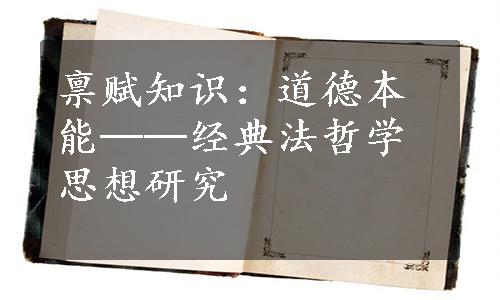 禀赋知识：道德本
能——经典法哲学
思想研究